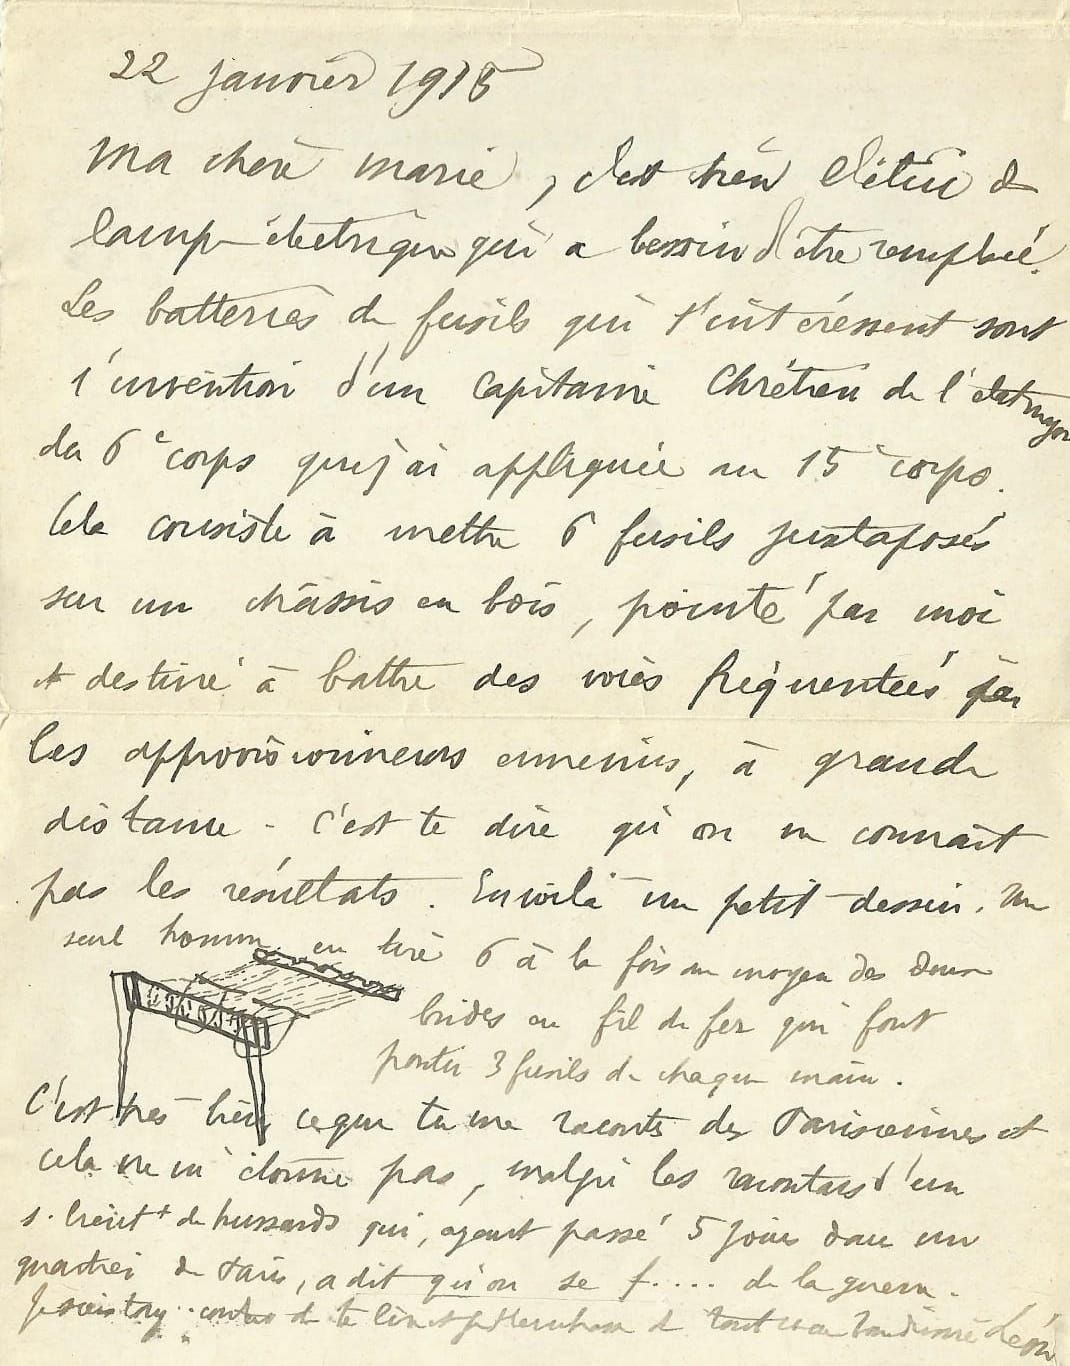 22 janvier 1915
Ma chère Marie, c'est bien de
lampe électrique qui a besoin d'être remplacé.
Les batteries de fusils qui t'intéressent sont
l'invention d'un Capitaine Chrétien de l'
du 6e corps que j'ai appliquée au 15e corps.
Cela consiste à mettre 6 fusils juxtaposés
sur un châssis en bois, pointé par moi
et destiné à battre des voies fréquentées par
les approvisionneurs ennemis, à grande
distance - C'est te dire qu'on en connaît
pas les résultats. En voilà un petit dessin. Un
seul homme en tire 6 à la fois au moyen des deux
brides en fil de fer qui font
partir 3 fusils de chaque main.
C'est très bien ce que tu me racontes des Parisiennes et
cela ne m'étonne pas, malgré les racontars d'un
s. lieutt de hussards qui, ayant passé 5 jours dans un
quartier de Paris, a dit qu'on se f.... de la guerre.
Je suis de te de tout Léon